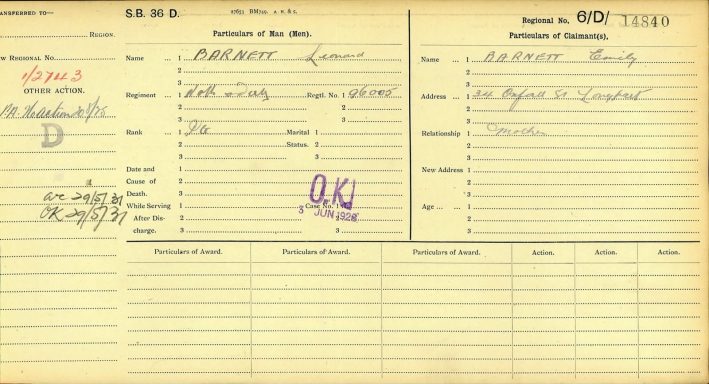 ANSFERRED TO—
REGION.
W REGIONAL NO.
1/2743
OTHER ACTION.
PA. No action
D
29/5/31
OK 29/5/31
S.B. 36 D.
27653 BM749. A. H. & S.
Regional No. 6/D/ 14840
Particulars of Man (Men).
Name ... 1 BARNETT Leonard
2
3
Regiment 1 Notts & Derby Regtl. No. 1 96005
2 2
3 3
Rank ... 1 Pte Marital 1
2 Status. 2
3 3
Date and 1
Cause of 2
Death. 3
While Serving 1 Case No. 1
After Dis- 2 2
charge. 3 3
O.K.
3 JUN 1926
Particulars of Claimant(s).
Name ... 1 BARNETT Emily
2
3
Address ... 1 34 St
2
3
Relationship 1 Mother
2
3
New Address 1
2
3
Age ... ... 1
2
3
Particulars of Award. Particulars of Award. Particulars of Award. Action. Action. Action.